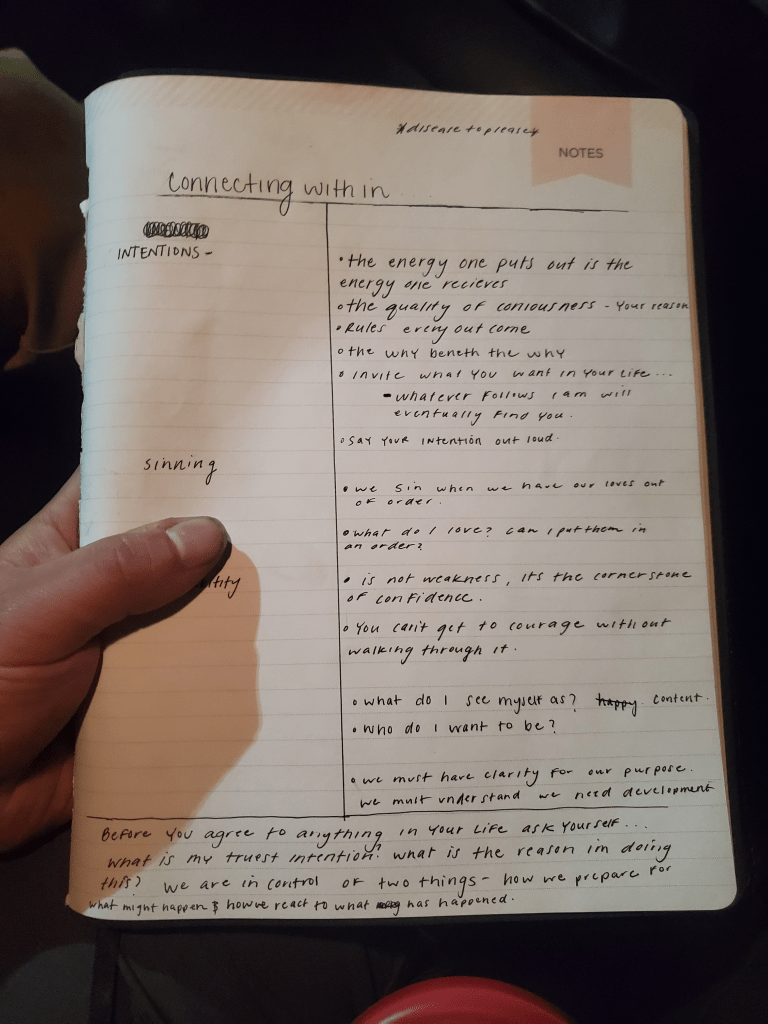 *disease to please*
NOTES
Connecting within...
INTENTIONS -
• the energy one puts out is the
energy one recieves
• the quality of coniousness - Your reason
• Rules every out come
• the why beneth the why
• invite what you want in your life...
- whatever follows I am will
eventually find you.
• say your intention out loud.
sinning
• we sin when we have our loves out
of order.
• what do I love? can I put them in
an order?
tity
• is not weakness, its the cornerstone
of confidence.
• You can't get to courage without
walking through it.
• what do I see myself as? happy content.
• Who do I want to be?
• we must have clarity for our purpose.
we must understand we need development
Before you agree to anything in your life ask yourself...
what is my truest intention? what is the reason im doing
this? we are in control of two things - how we prepare for
what might happen & how we react to what has happened.